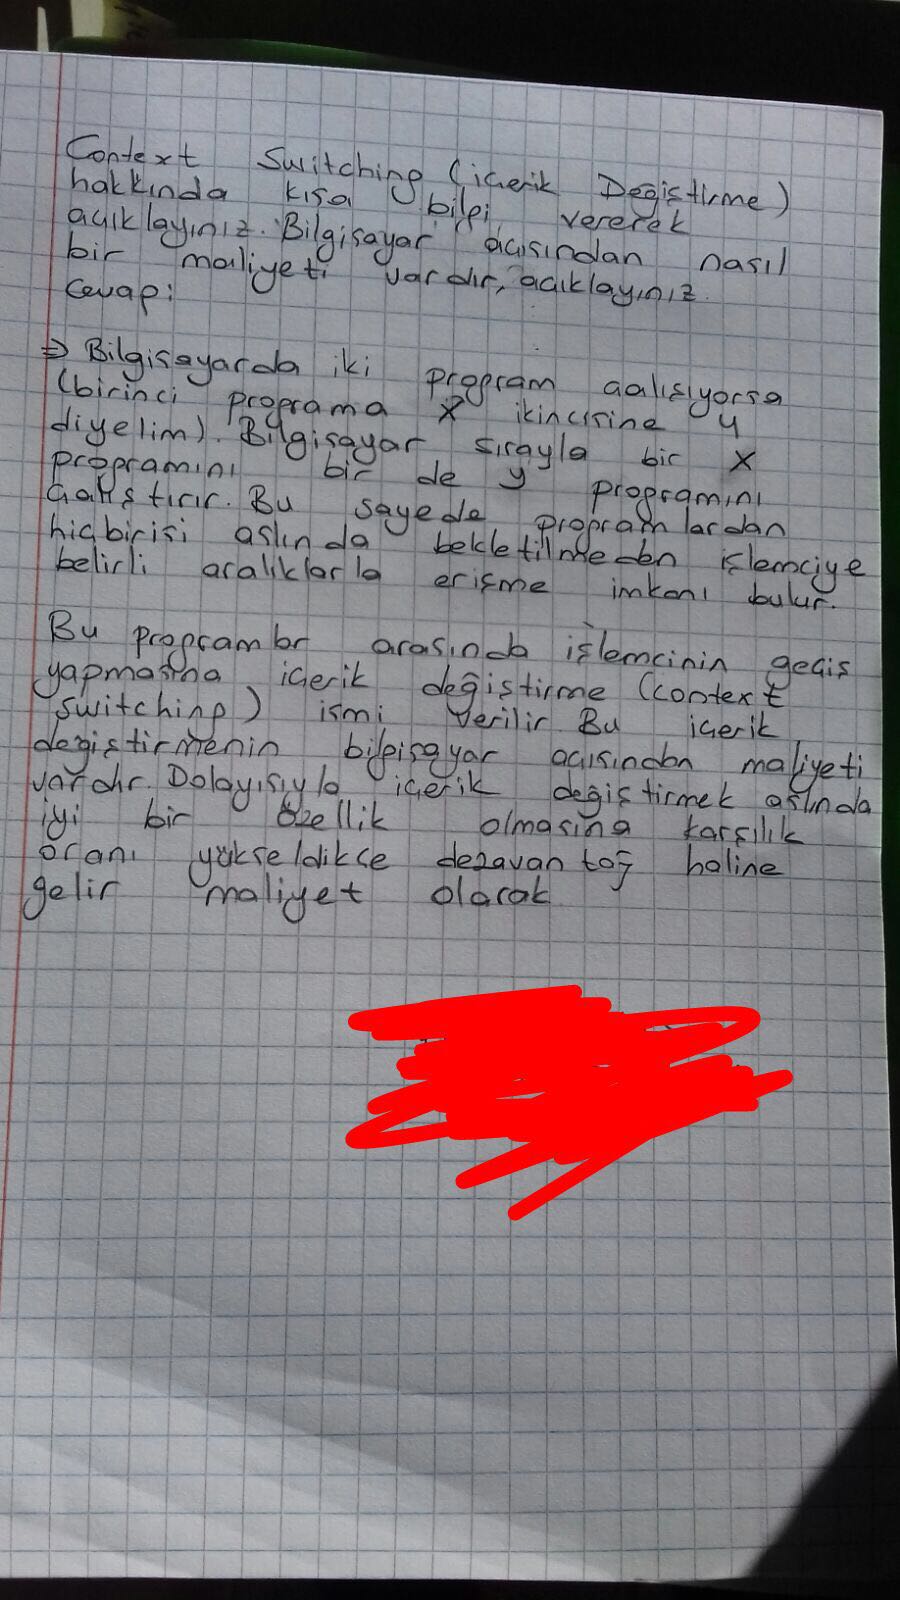 Context Switching (içerik Değiştirme)
hakkında kısa bilgi vererek
açıklayınız. Bilgisayar açısından nasıl
bir maliyeti vardır, açıklayınız.
Cevap:
⇒ Bilgisayarda iki program çalışıyorsa
(birinci programa X ikincisine y
diyelim). Bilgisayar sırayla bir X
programını bir de y programını
çalıştırır. Bu sayede programlardan
hiçbirisi aslında bekletilmeden işlemciye
belirli aralıklarla erişme imkanı bulur.
Bu programlar arasında işlemcinin geçiş
yapmasına içerik değiştirme (context
switching) ismi verilir. Bu içerik
değiştirmenin bilgisayar açısından maliyeti
vardır. Dolayısıyla içerik değiştirmek aslında
iyi bir özellik olmasına karşılık
oranı yükseldikçe dezavantaj haline
gelir maliyet olarak